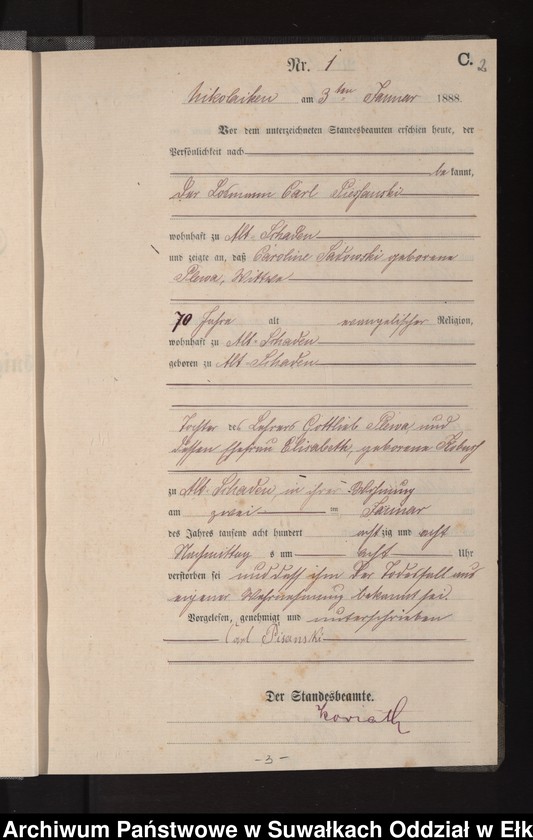 Nr. 1
C.
2
Nikolaiken am 3ten Januar 1888.
Vor dem unterzeichneten Standesbeamten erschien heute, der
Persönlichkeit nach
be kannt,
der Losmann Carl
wohnhaft zu Alt-Schaden
und zeigte an, daß Caroline Sadowski geborene
Plewa, Wittwe
70 Jahre alt evangelischer Religion,
wohnhaft zu Alt-Schaden
geboren zu Alt-Schaden
Tochter des Lehrers Gottlieb Plewa und
dessen Ehefrau Elisabeth, geborene
zu Alt-Schaden, in ihrer Wohnung
am zwei ten Januar
des Jahres tausend acht hundert achtzig und acht
Nachmittag s um acht Uhr
verstorben sei und daß ihm der Todesfall aus
eigener Wahrnehmung bekannt sei.
Vorgelesen, genehmigt und unterschrieben
Carl Pisanski
Der Standesbeamte.
-3-
Archiwum Państwowe w Suwałkach Oddział w Ełk